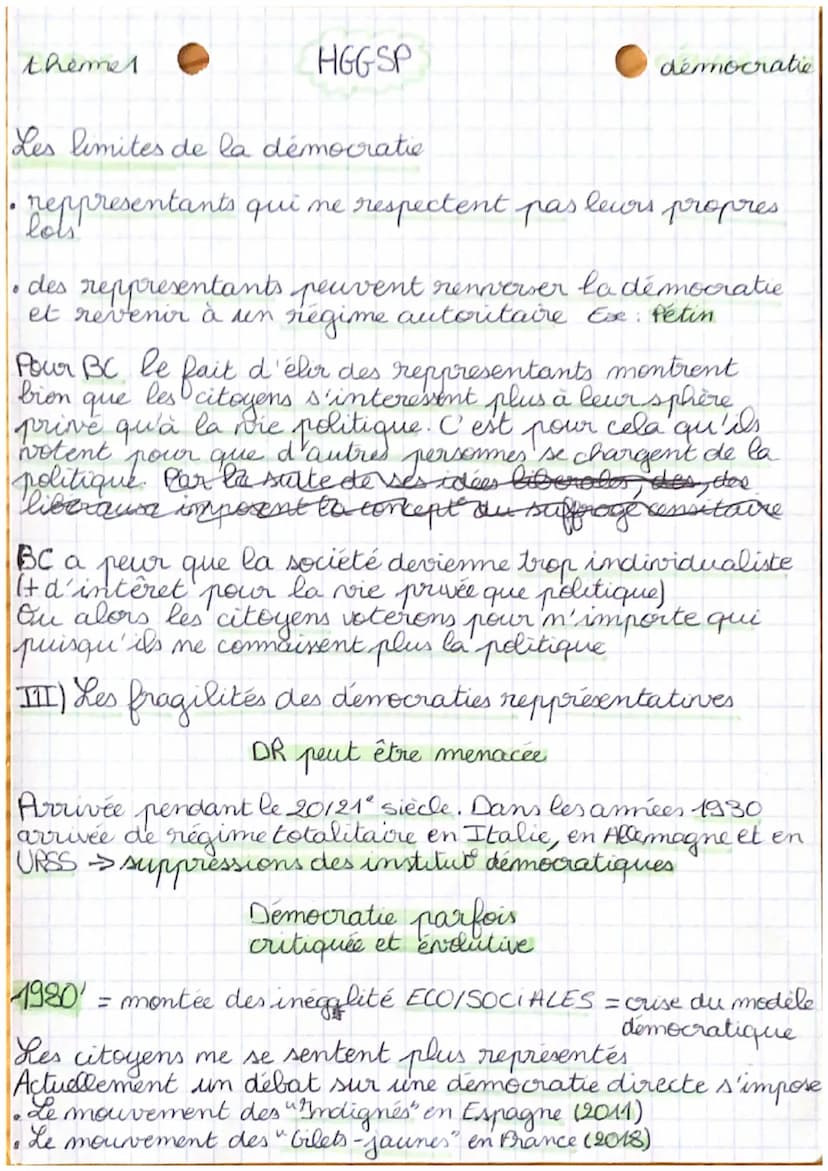 thème1
HGGSP
démocratie
Les limites de la démocratie
• reppresentants qui ne respectent pas leurs propres
lois
• des reppresentants peuvent renverser la démocratie
et revenir à un régime autoritaire Exe : Pétin
Pour BC le fait d'élir des reppresentants montrent
bien que les citoyens s'interessent plus à leur sphère
privé qu'à la vie politique. C'est pour cela qu'ils
votent pour que d'autres personnes se chargent de la
politique. Par la suite de ses idées liberales, des, des
liberaux imposent la concept du suffrage censitaire
BC a peur que la société devienne trop individualiste
(+ d'intêret pour la vie privée que politique)
Ou alors les citoyens voterons pour n'importe qui
puisqu'ils ne connaissent plus la politique
III) Les fragilités des démocraties reppresentatives
DR peut être menacée
Arrivée pendant le 20/21e siècle. Dans les années 1930
arrivée de régime totalitaire en Italie, en Allemagne et en
URSS → suppressions des institut° démocratiques
Démocratie parfois
critiquée et évolutive
1980' = montée des inégalité ECO/SOCIALES = crise du modèle
démocratique
Les citoyens ne se sentent plus représentés
Actuellement un débat sur une démocratie directe s'impose
• Le mouvement des "Indignés" en Espagne (2011)
• Le mouvement des "Gilets-jaunes" en France (2018)